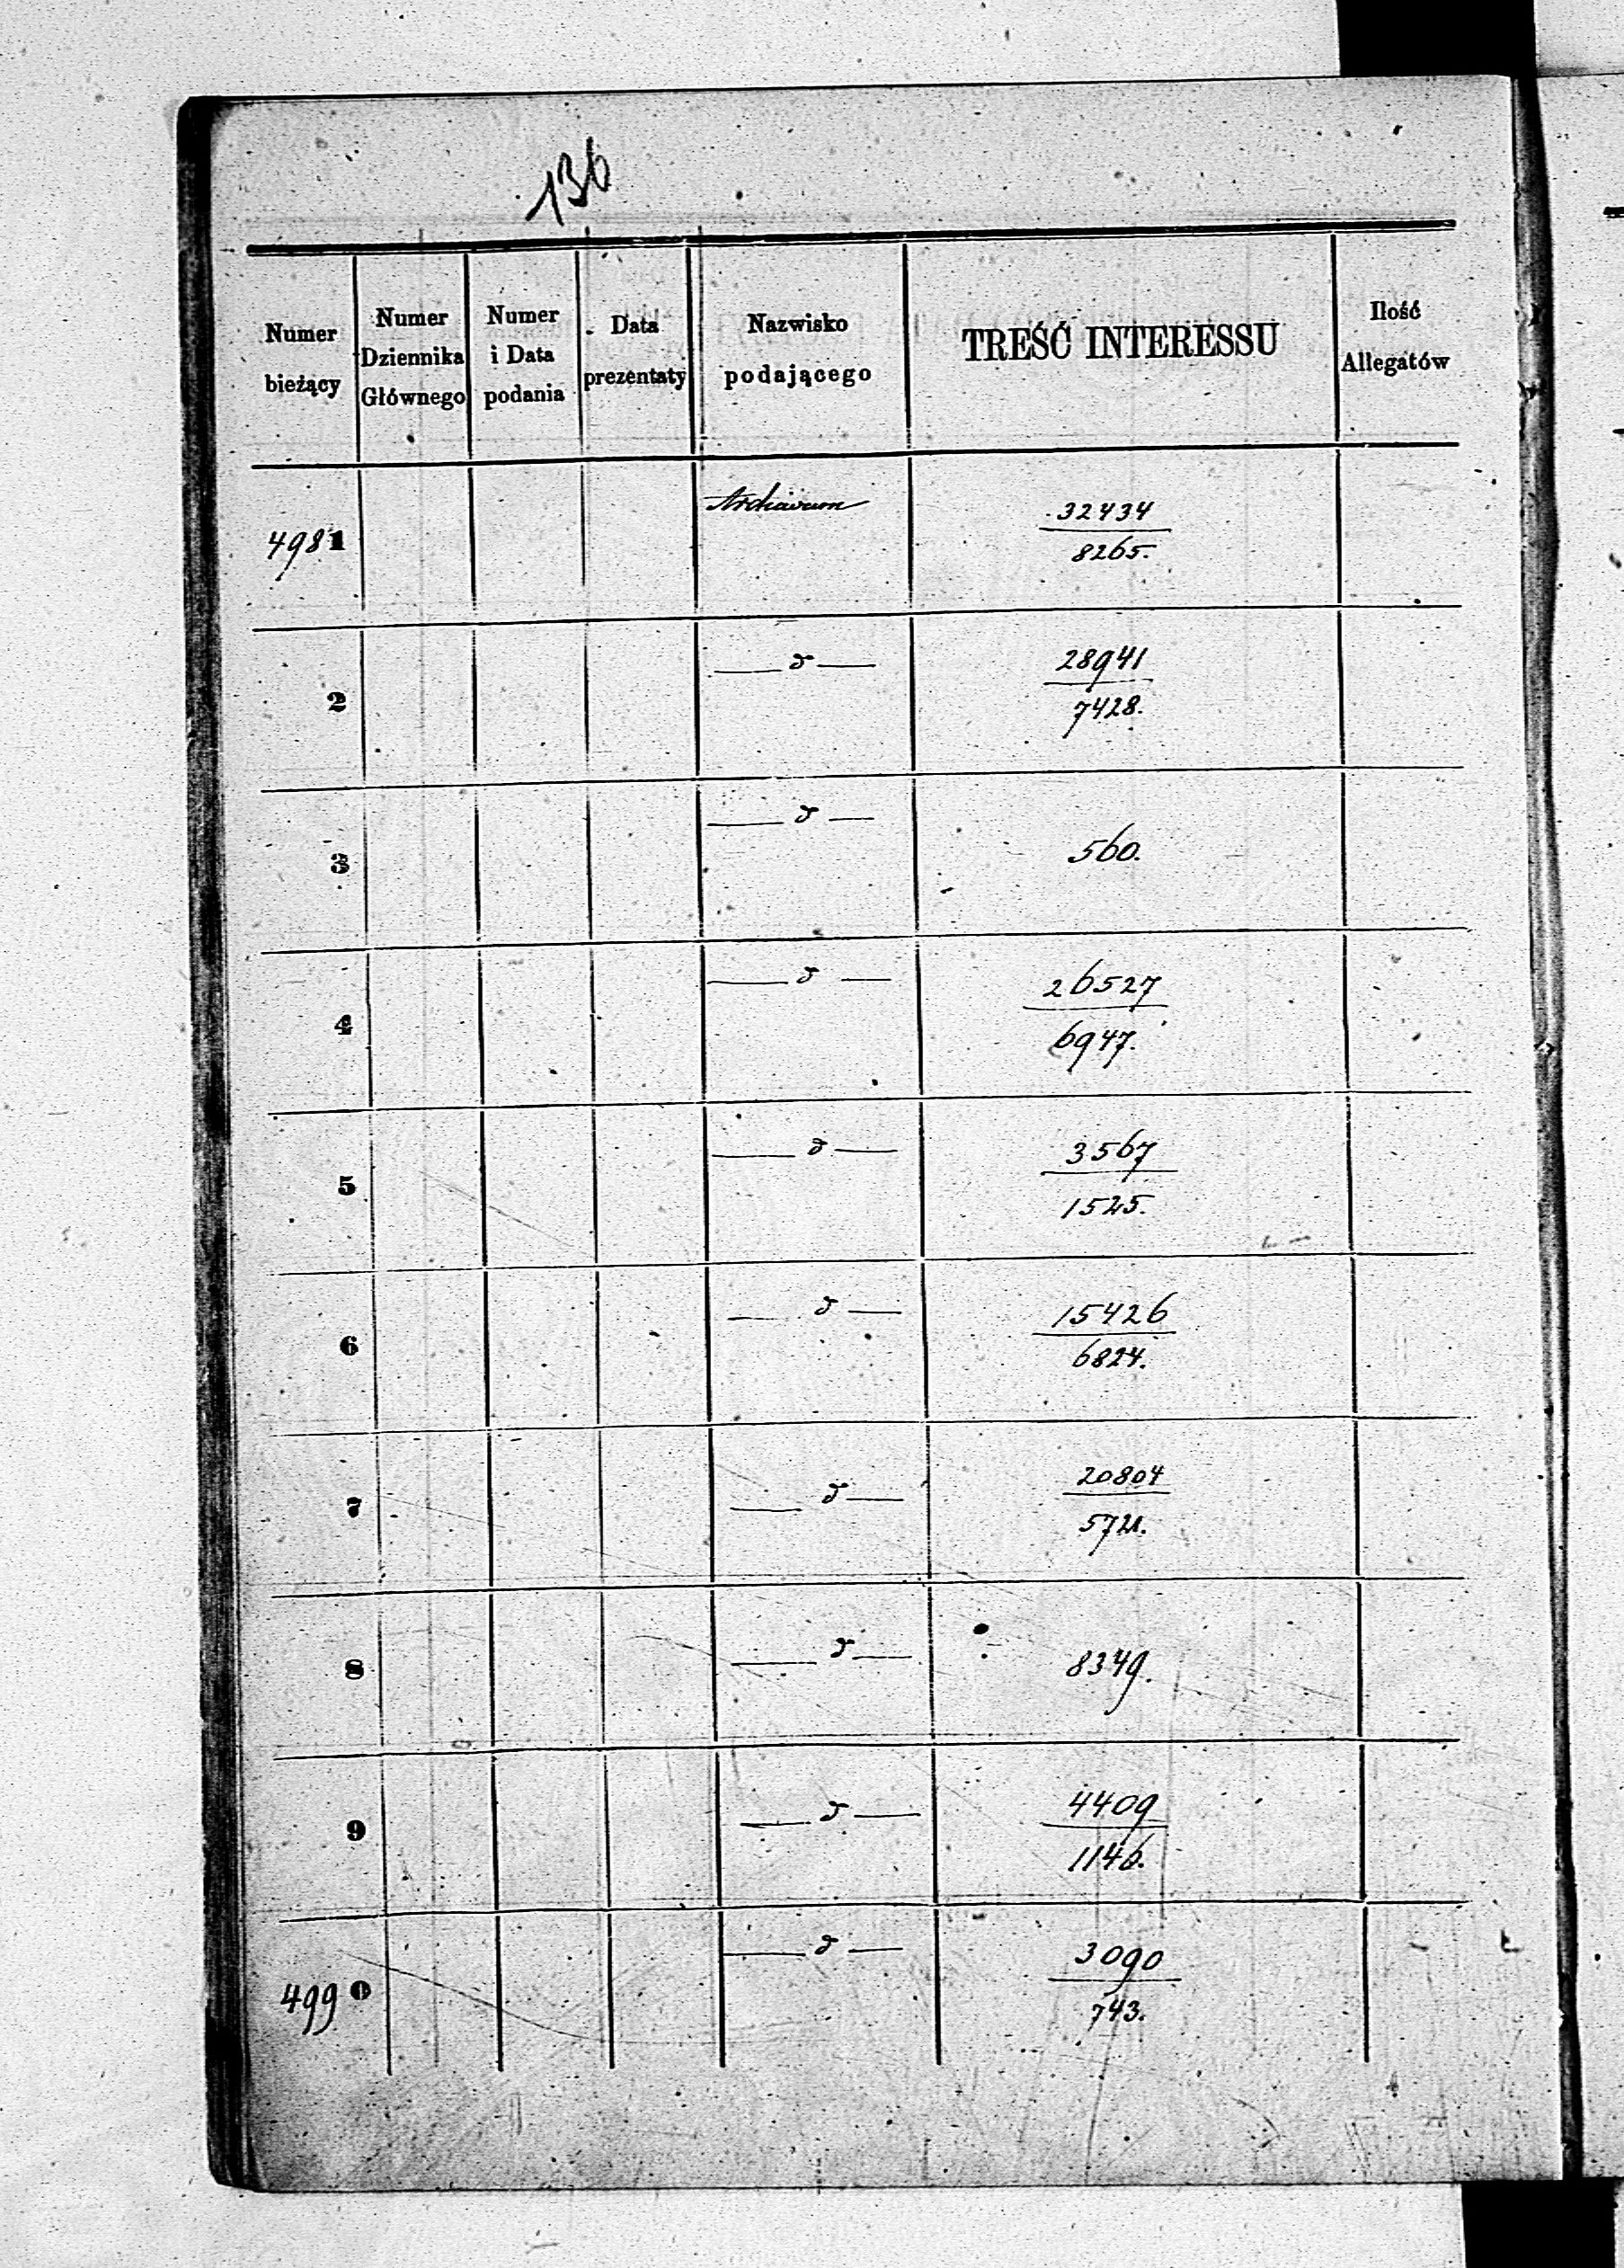 136
Numer bieżący
Numer Dziennika Głównego
Numer i Data podania
Data prezentaty
Nazwisko podającego
TREŚĆ INTERESSU
Ilość Allegatów
4981 Archiwum 32434
8265.
2 — d — 28941
7428.
3 — d — 560.
4 — d — 26527
6947.
5 — d — 3567
1525.
6 — d — 15426
6824.
7 — d — 20804
8 — d — 8349.
9 — d — 4409
1146.
4990 — d — 3090
743.